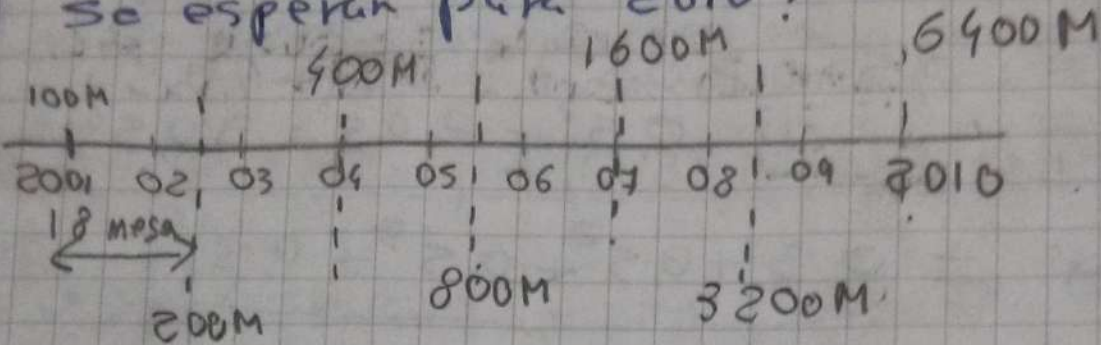 se esperan para 2010?
100M 400M 1600M 6400M
2001 02 03 04 05 06 07 08 09 2010
18 meses
200M 800M 3200M